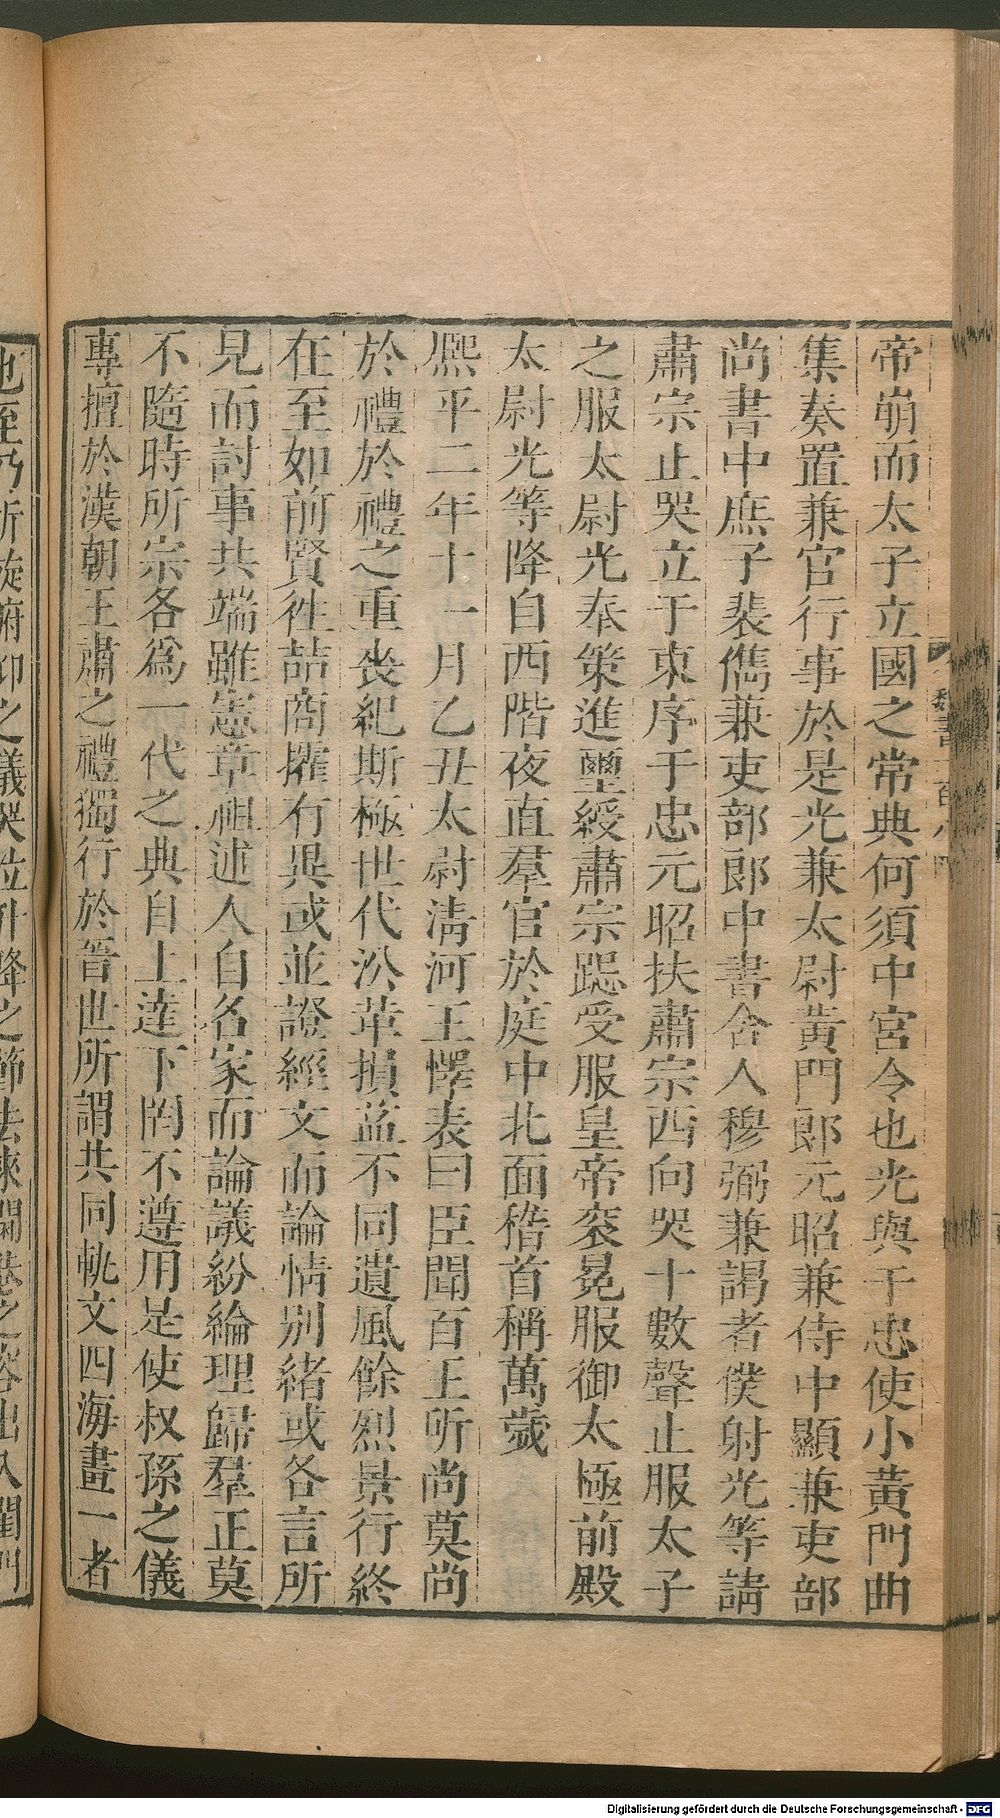 帝崩而太子立國之常典何須中宮令也光與于忠使小黃門曲
集奏置兼官行事於是光兼太尉黃門郎元昭兼侍中顯兼吏部
尚書中庶子裴儁兼吏部郎中書舍人穆弼兼謁者僕射光等請
肅宗止哭立于東序于忠元昭扶肅宗西向哭十數聲止服太子
之服太尉光奉策進璽綬肅宗跽受服皇帝衮冕服御太極前殿
太尉光等降自西階夜直羣官於庭中北面稽首稱萬歲
熙平二年十一月乙丑太尉清河王懌表曰臣聞百王所尚莫尚
於禮於禮之重喪紀斯極世代沿革損益不同遺風餘烈景行終
在至如前賢徃喆商攉有異或並證經文而論情別緒或各言所
見而討事共端雖憲章祖述人自名家而論議紛綸理歸羣正莫
不隨時所宗各爲一代之典自上達下罔不遵用是使叔孫之儀
專擅於漢朝王肅之禮獨行於晉世所謂共同軌文四海畫一者
Digitalisierung gefördert durch die Deutsche Forschungsgemeinschaft - DFG